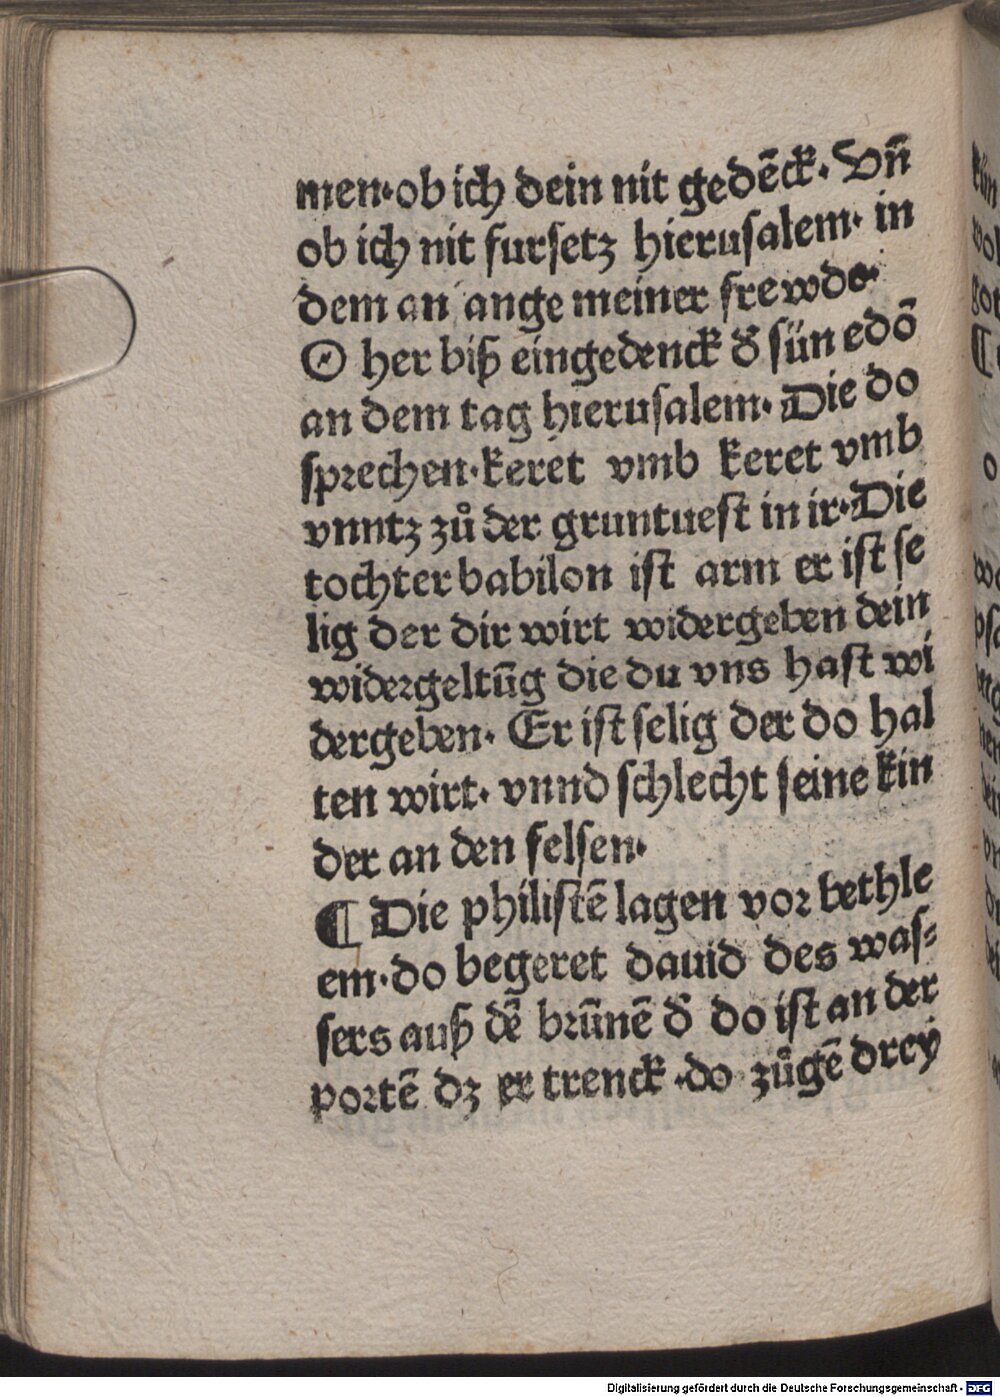 men·ob ich dein nit gedēck· Vn̄
ob ich nit fursetz hierusalem· in
dem an ange meiner frewde·
O her biß eingedenck d̄ sün edō
an dem tag hierusalem· Die do
sprechen·keret vmb keret vmb
vnntz zů der gruntuest in ir·Die
tochter babilon ist arm er ist se
lig der dir wirt widergeben dein
widergeltūg die du vns hast wi
dergeben· Er ist selig der do hal
ten wirt· vnnd schlecht seine kin
der an den felsen·
¶ Die philistē lagen vor bethle
em·do begeret dauid des was⸗
sers auß dē brūnē d̄ do ist an der
portē dz er trenck ·do zůgē drey
Digitalisierung gefördert durch die Deutsche Forschungsgemeinschaft - DFG